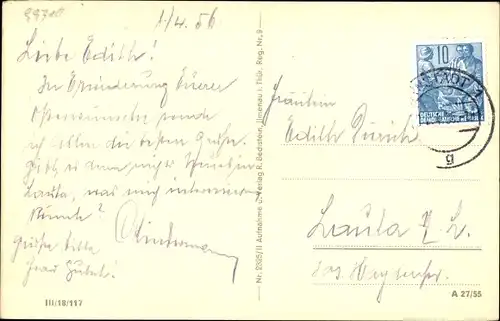 1/4. 56
Liebe Edith!
In Erwiderung Eurer
Osterwünsche sende
ich allen die besten Grüße.
Gibt es denn nichts Neues in
Lauta, was mich interessieren
könnte?
Grüße bitte
Frau
III/18/117
Nr. 2325/11 Aufnahme u. Verlag R. Bechstein, Ilmenau i. Thür. Reg. Nr. 9
10
DEUTSCHE
DEMOKRATISCHE REPUBLIK
g
Fräulein
Edith
Lauta N. L.
A 27/55